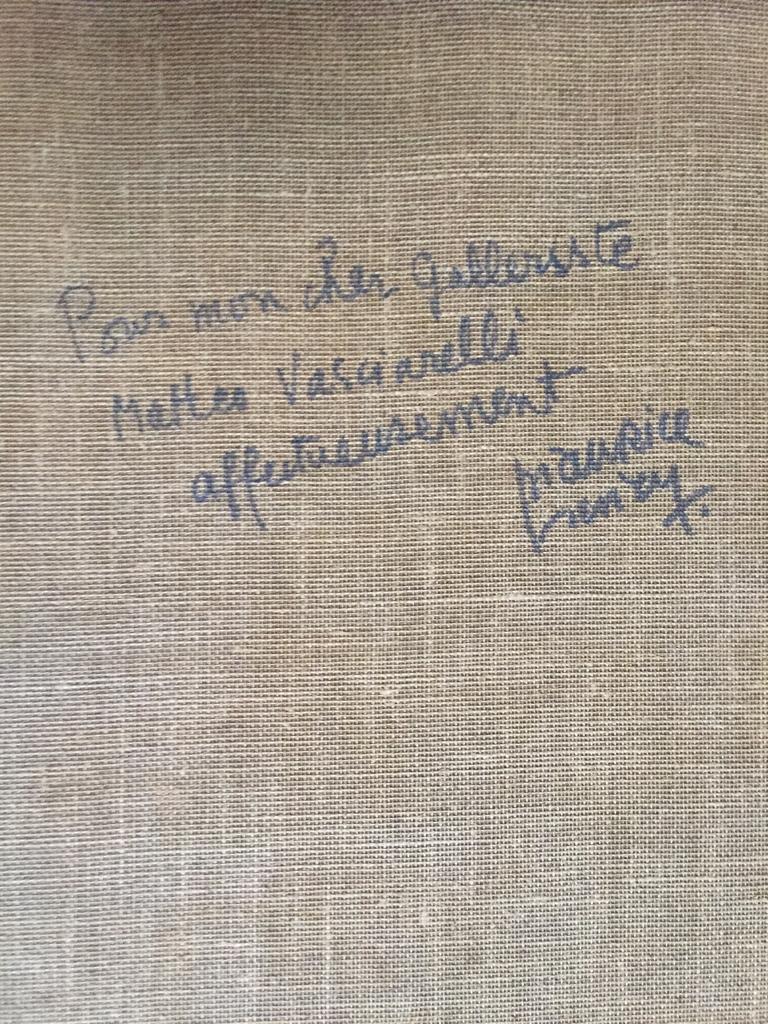 Pour mon cher Gallerisste
Matteo Vasciarelli
affectueusement
Maurice